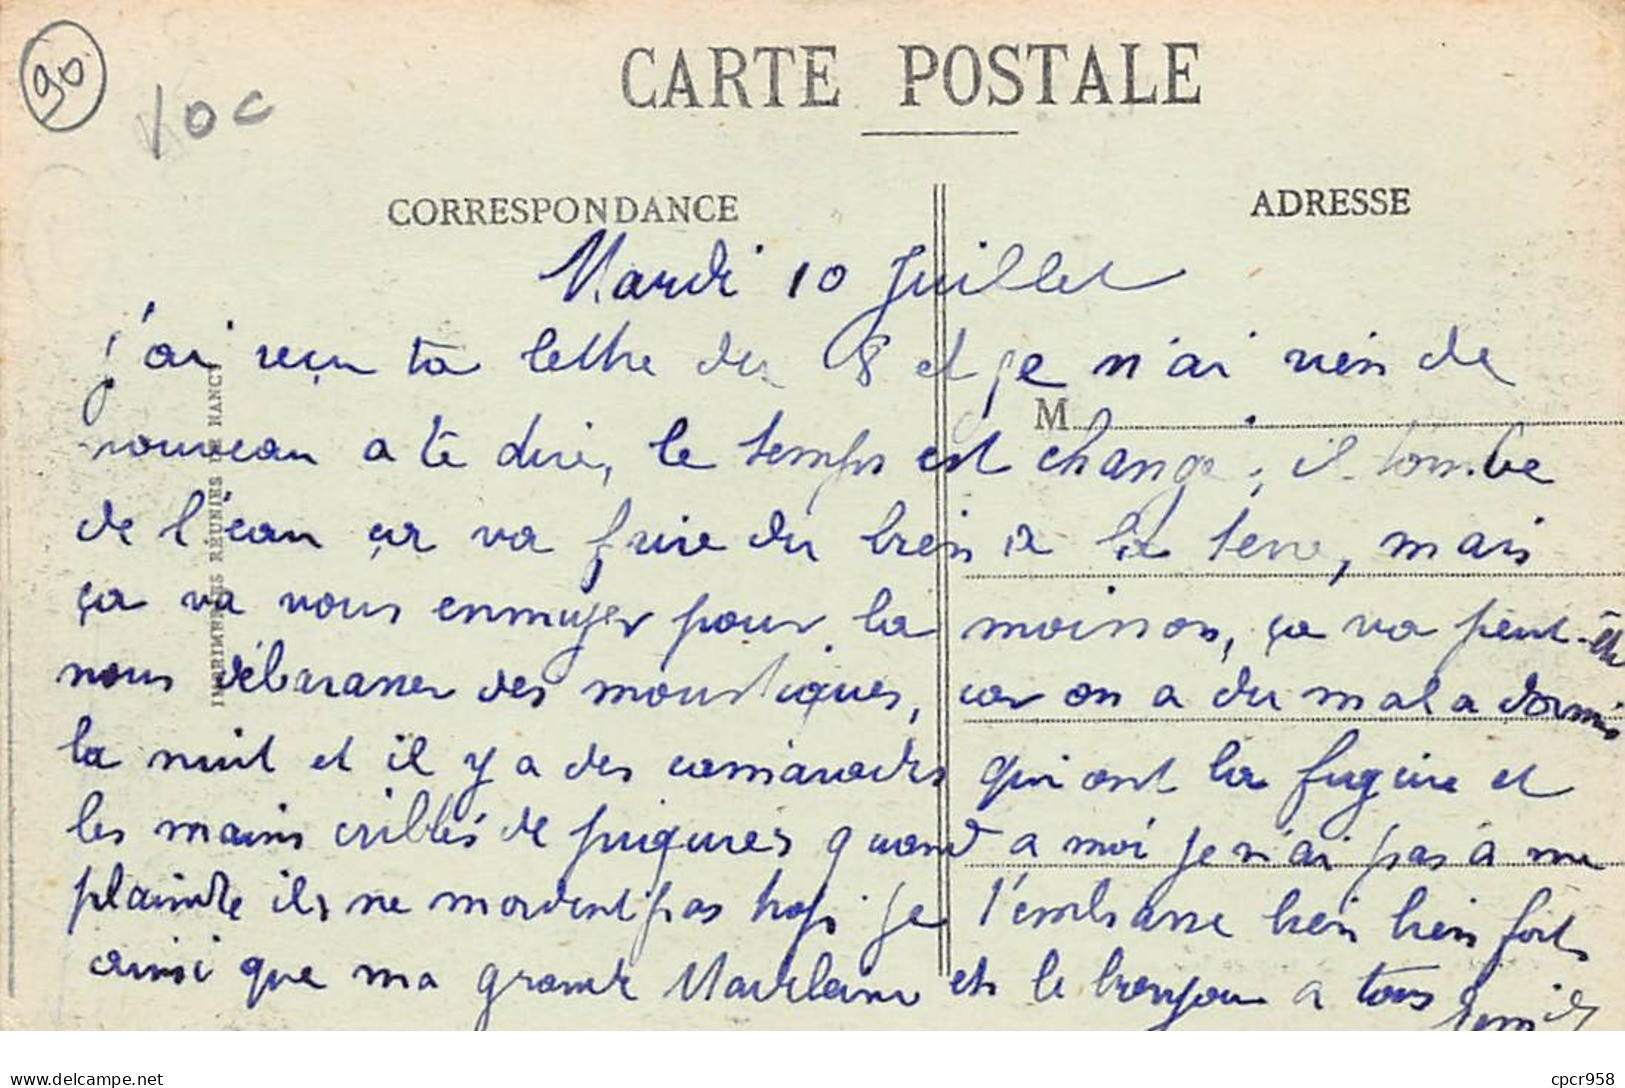 90
10 c
CARTE POSTALE
CORRESPONDANCE
ADRESSE
Mardi 10 Juillet
j'ai reçu ta lettre du 8 et je n'ai rien de
M
nouveau a te dire, le temps est changé, il tombe
de l'eau ça va faire du bien a la terre, mais
ça va vous ennuyer pour la moisson, ça va peut-être
nous débarasser des moustiques, car on a du mal a dormir
la nuit et il y a des camarades qui ont la figure et
les mains criblés de piqures quand a moi je n'ai pas à me
plaindre ils ne mordent pas trop. je t'embrasse bien bien fort
ainsi que ma grande Madelaine et le bonjour a tous
IMPRIMERIES RÉUNIES DE NANCY
www.delcampe.net
cpcr958